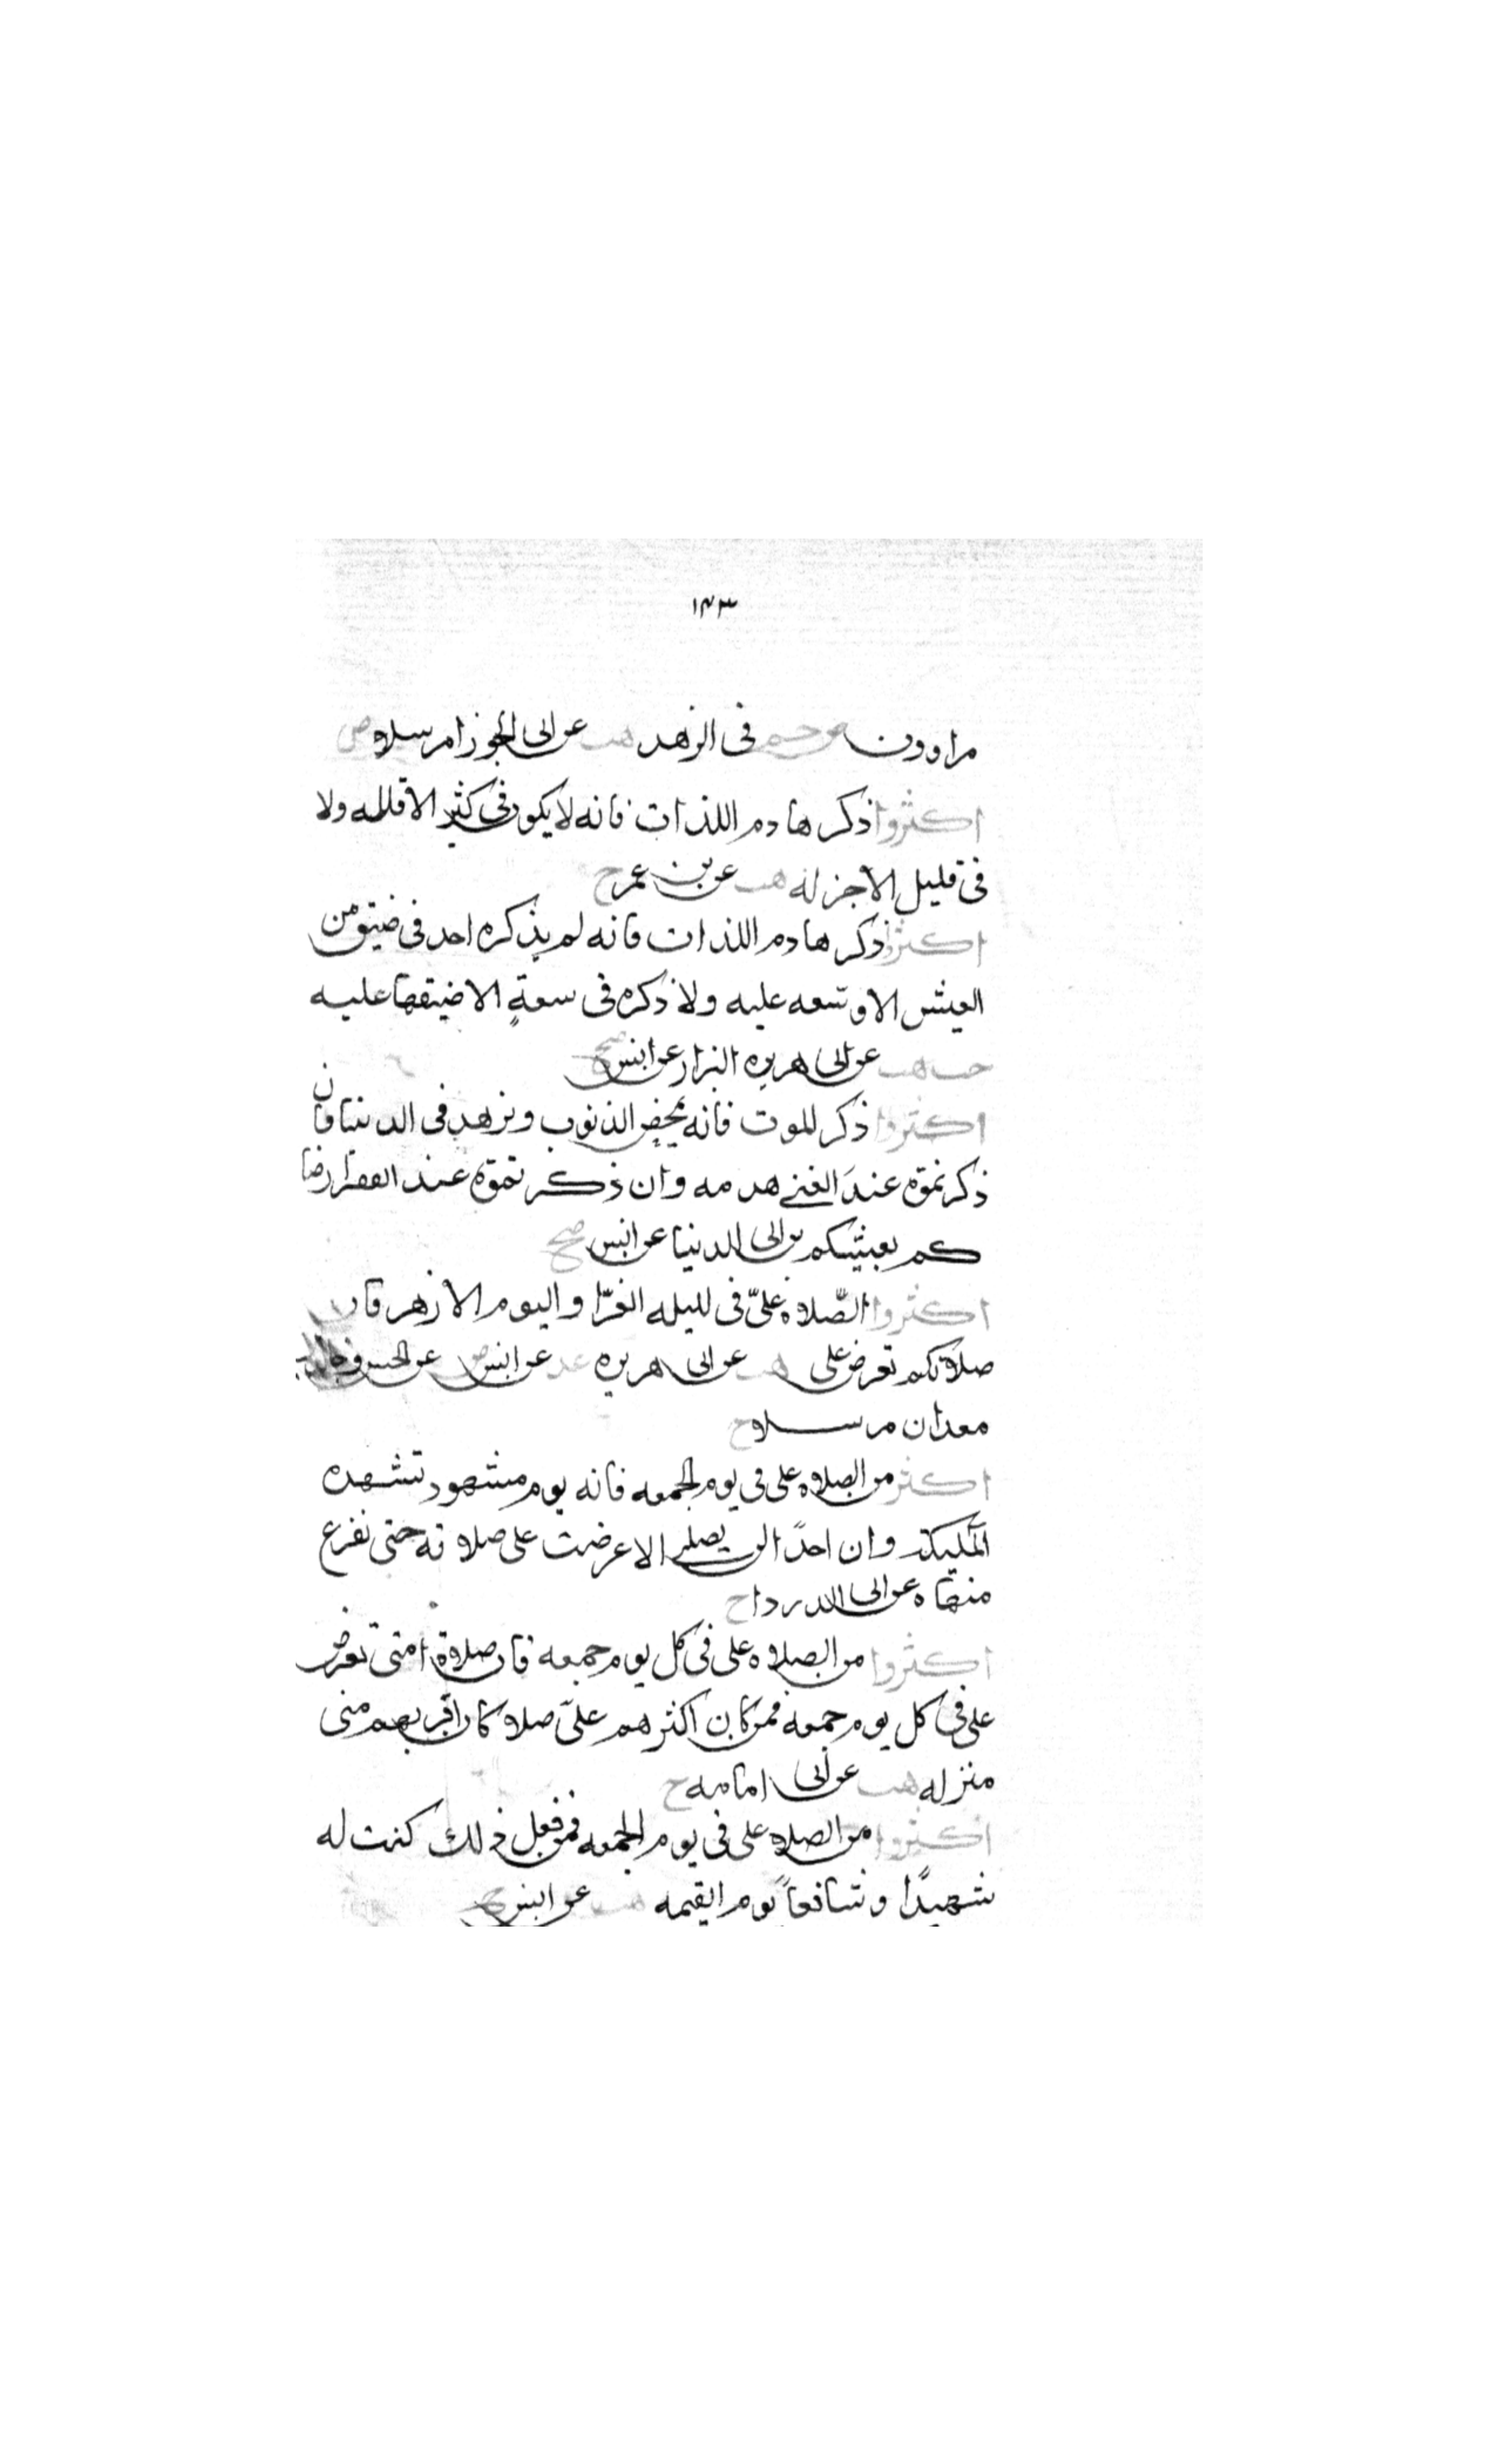 ١٣٣
مراوون ص حم في الزهد هب عن ابى الجوزا مرسلا ص
اكثروا ذكر هادم اللذات فانه لا يكون فى كثير الا قلله ولا
فى قليل الا جزله هب عن بن عمر ح
اكثروا ذكر هادم اللذات فانه لم يذكره احد فى ضيق من
العيش الا وسعه عليه ولا ذكره فى سعةٍ الا ضيقها عليه
حب هب عن ابى هريره البزار عن انس صح
اكثروا ذكر الموت فانه يمحص الذنوب ويزهد فى الدنيا فان
ذكرتموه عندَ الغنى هدمه وان ذكرتموه عند الفقر ارضا
كم بعيشكم بن ابى الدنيا عن انس صح
اكثروا الصّلاه علىّ فى لليله الغرّا واليوم الازهر فان
صلاتكم تعرض على هب عن ابى هريره عد عن انس ص عن الحسن وخالد بن
معدان مرسلا ح
اكثر من الصلاه على فى يوم الجمعه فانه يوم مشهود تشهده
الملٓيكة وان احدًا لن يصلي الا عرضت على صلاته حتى يفرغ
منها ه عن ابى الدرداح
اكثروا من الصلاه على فى كل يوم جمعه فان صلاة امتى تعرض
على فى كل يوم جمعه فمن كان اكثرهم علىّ صلاه كان اقربهم منى
منزله هب عن ابى امامه ح
اكثروا من الصلاه على فى يوم الجمعه فمن فعل ذلك كنت له
شهيدًا وشافعاً يوم القيمه هب عن انس ح